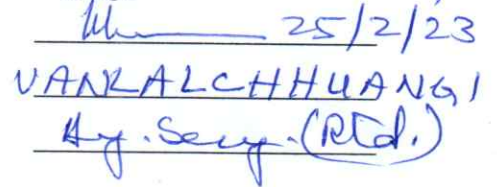 25/2/23
VANLALCHHUANGI
Hy. Secy. (Rtd.)